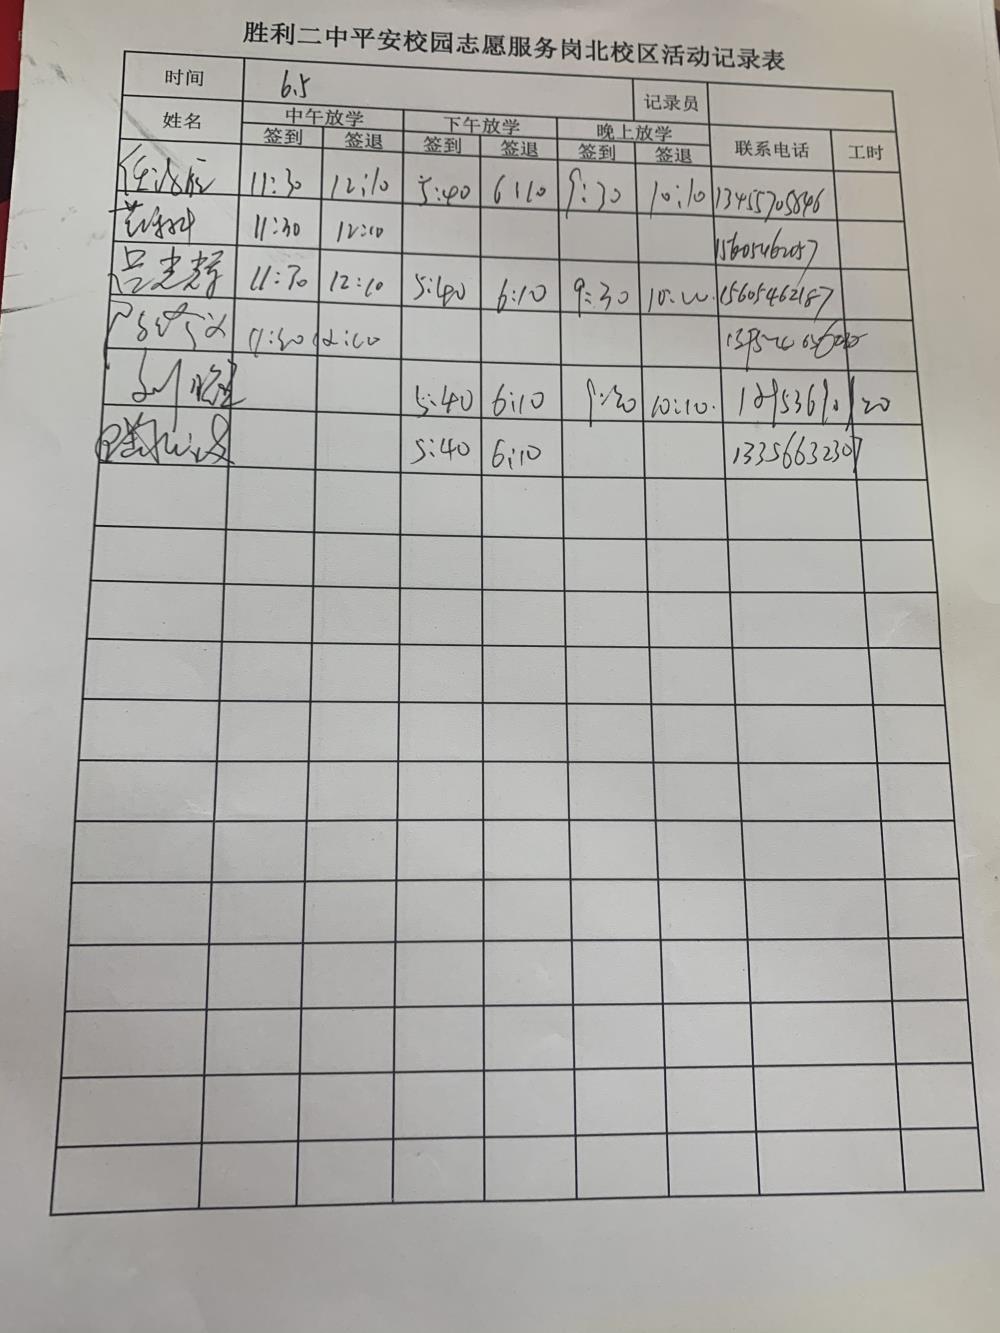 胜利二中平安校园志愿服务岗北校区活动记录表
时间 6.5 记录员
姓名 中午放学 下午放学 晚上放学 联系电话 工时
签到 签退 签到 签退 签到 签退
11:30 12:10 5:40 6:10 9:30 10:10 13455705846
11:30 12:10 15605462057
吕志群 11:30 12:10 5:40 6:10 9:30 10:10. 15605462187
11:30 12:10
5:40 6:10 9:30 10:10.
5:40 6:10 13356632307